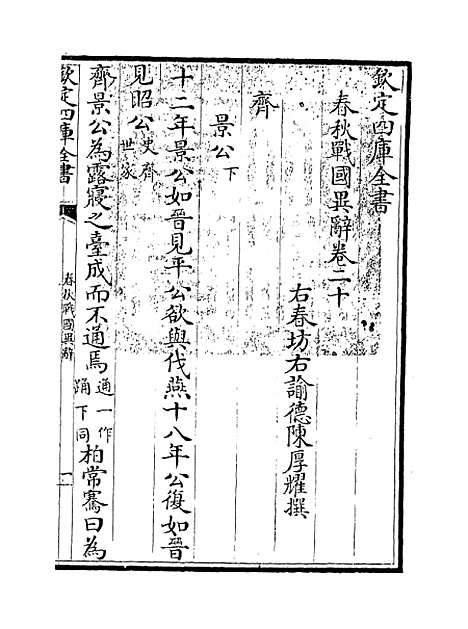 欽定四庫全書
春秋戰國異辭卷二十
右春坊右諭德陳厚耀撰
齊
景公下
十二年景公如晉見平公欲與伐燕十八年公復如晉
見昭公史齊世家
齊景公為露寢之臺成而不通焉通一作踊下同柏常騫曰為
欽定四庫全書
春秋戰國異辭
一